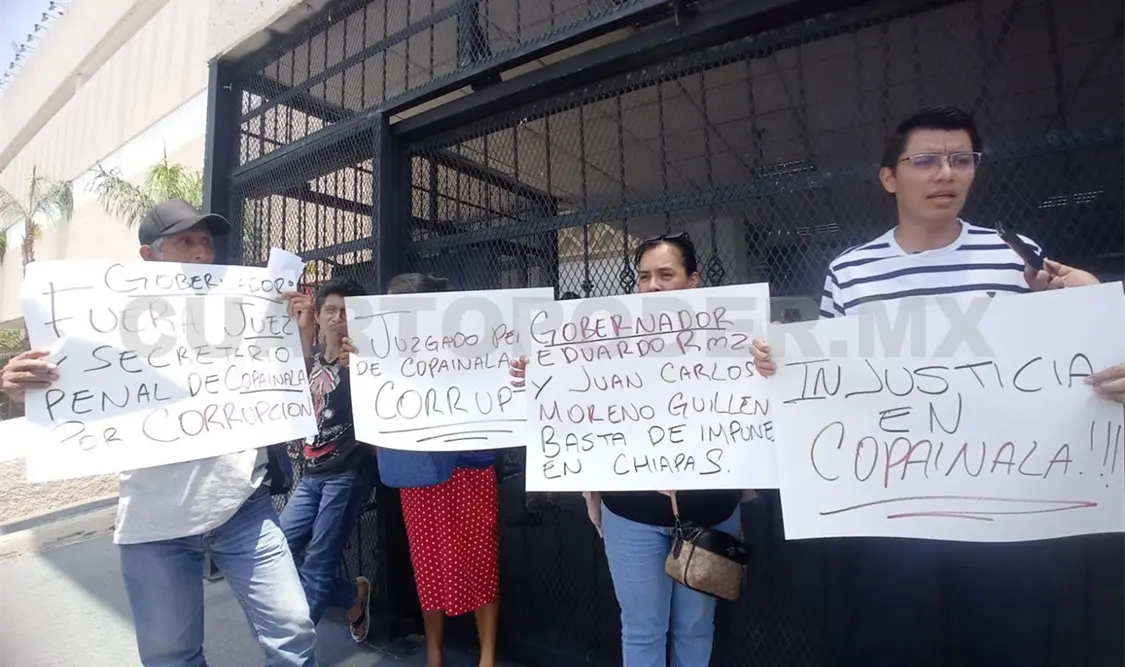 GOBERNADOR:
FUERA JUEZ
Y SECRETARIO
PENAL DE COPAINALA
POR CORRUPCION
JUZGADO PE
DE COPAINALA
CORRUP
GOBERNADOR
EDUARDO RMZ
Y JUAN CARLOS
MORENO GUILLEN
BASTA DE IMPUNE
EN CHIAPAS.
INJUSTICIA
EN
COPAINALA.!!!
CUARTOPODER.MX